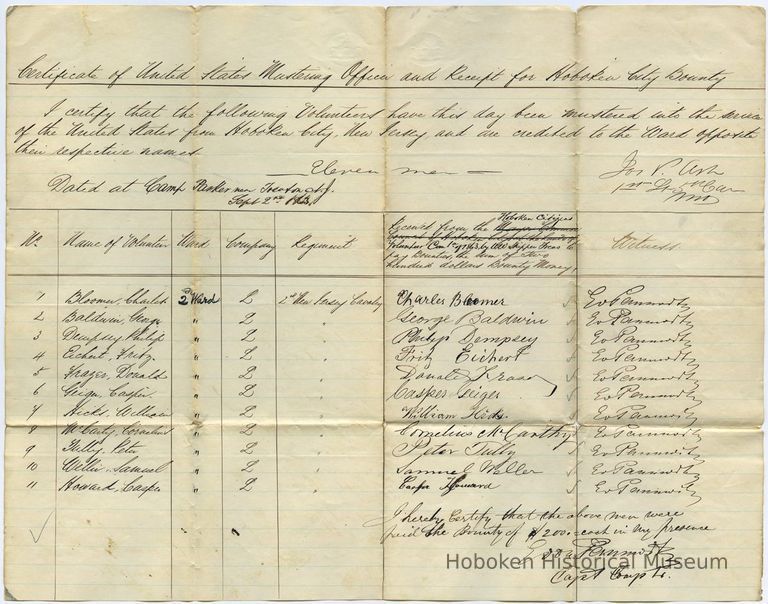 Certificate of United States Mustering Officer and Receipt for Hoboken City Bounty
I certify that the following Volunteers have this day been mustered into the service
of the United States from Hoboken City, New Jersey and are credited to the Ward opposite
their respective names
Eleven men
Jos P. Ash
Dated at Camp Parker near Trenton N.J.
Sept 2nd 1863
No. Name of Volunteer Ward Company Regiment
Receiv'd from the Hoboken Citizens
Volunteer to
pay Bounties, the sum of Two
hundred dollars Bounty Money,
Witness
1 Bloomer, Charles 2 Ward L 2nd New Jersey Cavalry Charles Bloomer
2 Baldwin, George " L " George Baldwin
3 Dempsey, Philip " L " Philip Dempsey
4 Eichert, Fritz " L " Fritz Eichert
5 Frazer, Donald " L " Donald
6 Geiger, Casper " L " Casper Geiger
7 Hicks, William " L " William Hicks
8 McCarty, Cornelius " L " Cornelius McCarthy
9 Tully, Peter " L " Peter Tully
10 Samuel " L " Samuel
11 Howard, Casper " L " Casper Howard
I hereby Certify that the above men were
paid the Bounty of $200 cash in my presence
Capt
Hoboken Historical Museum